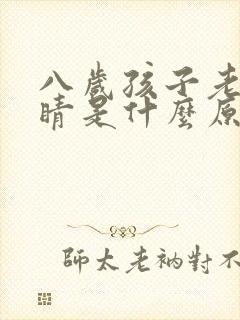 八歲孩子老
睛是什麼原
師太老衲對不